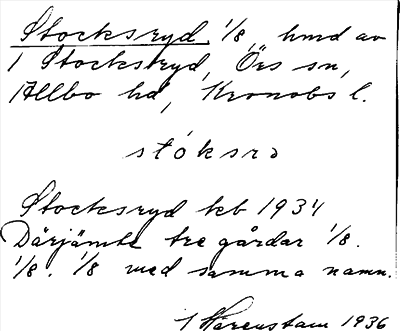 Stocksryd, 1/8, hmd av
1 Stocksryd, Örs sn,
Allbo hd, Kronobs l.
stóksrə
Stocksryd kb 1934
Därjämte tre gårdar 1/8.
1/8. 1/8 med samma namn.
1936